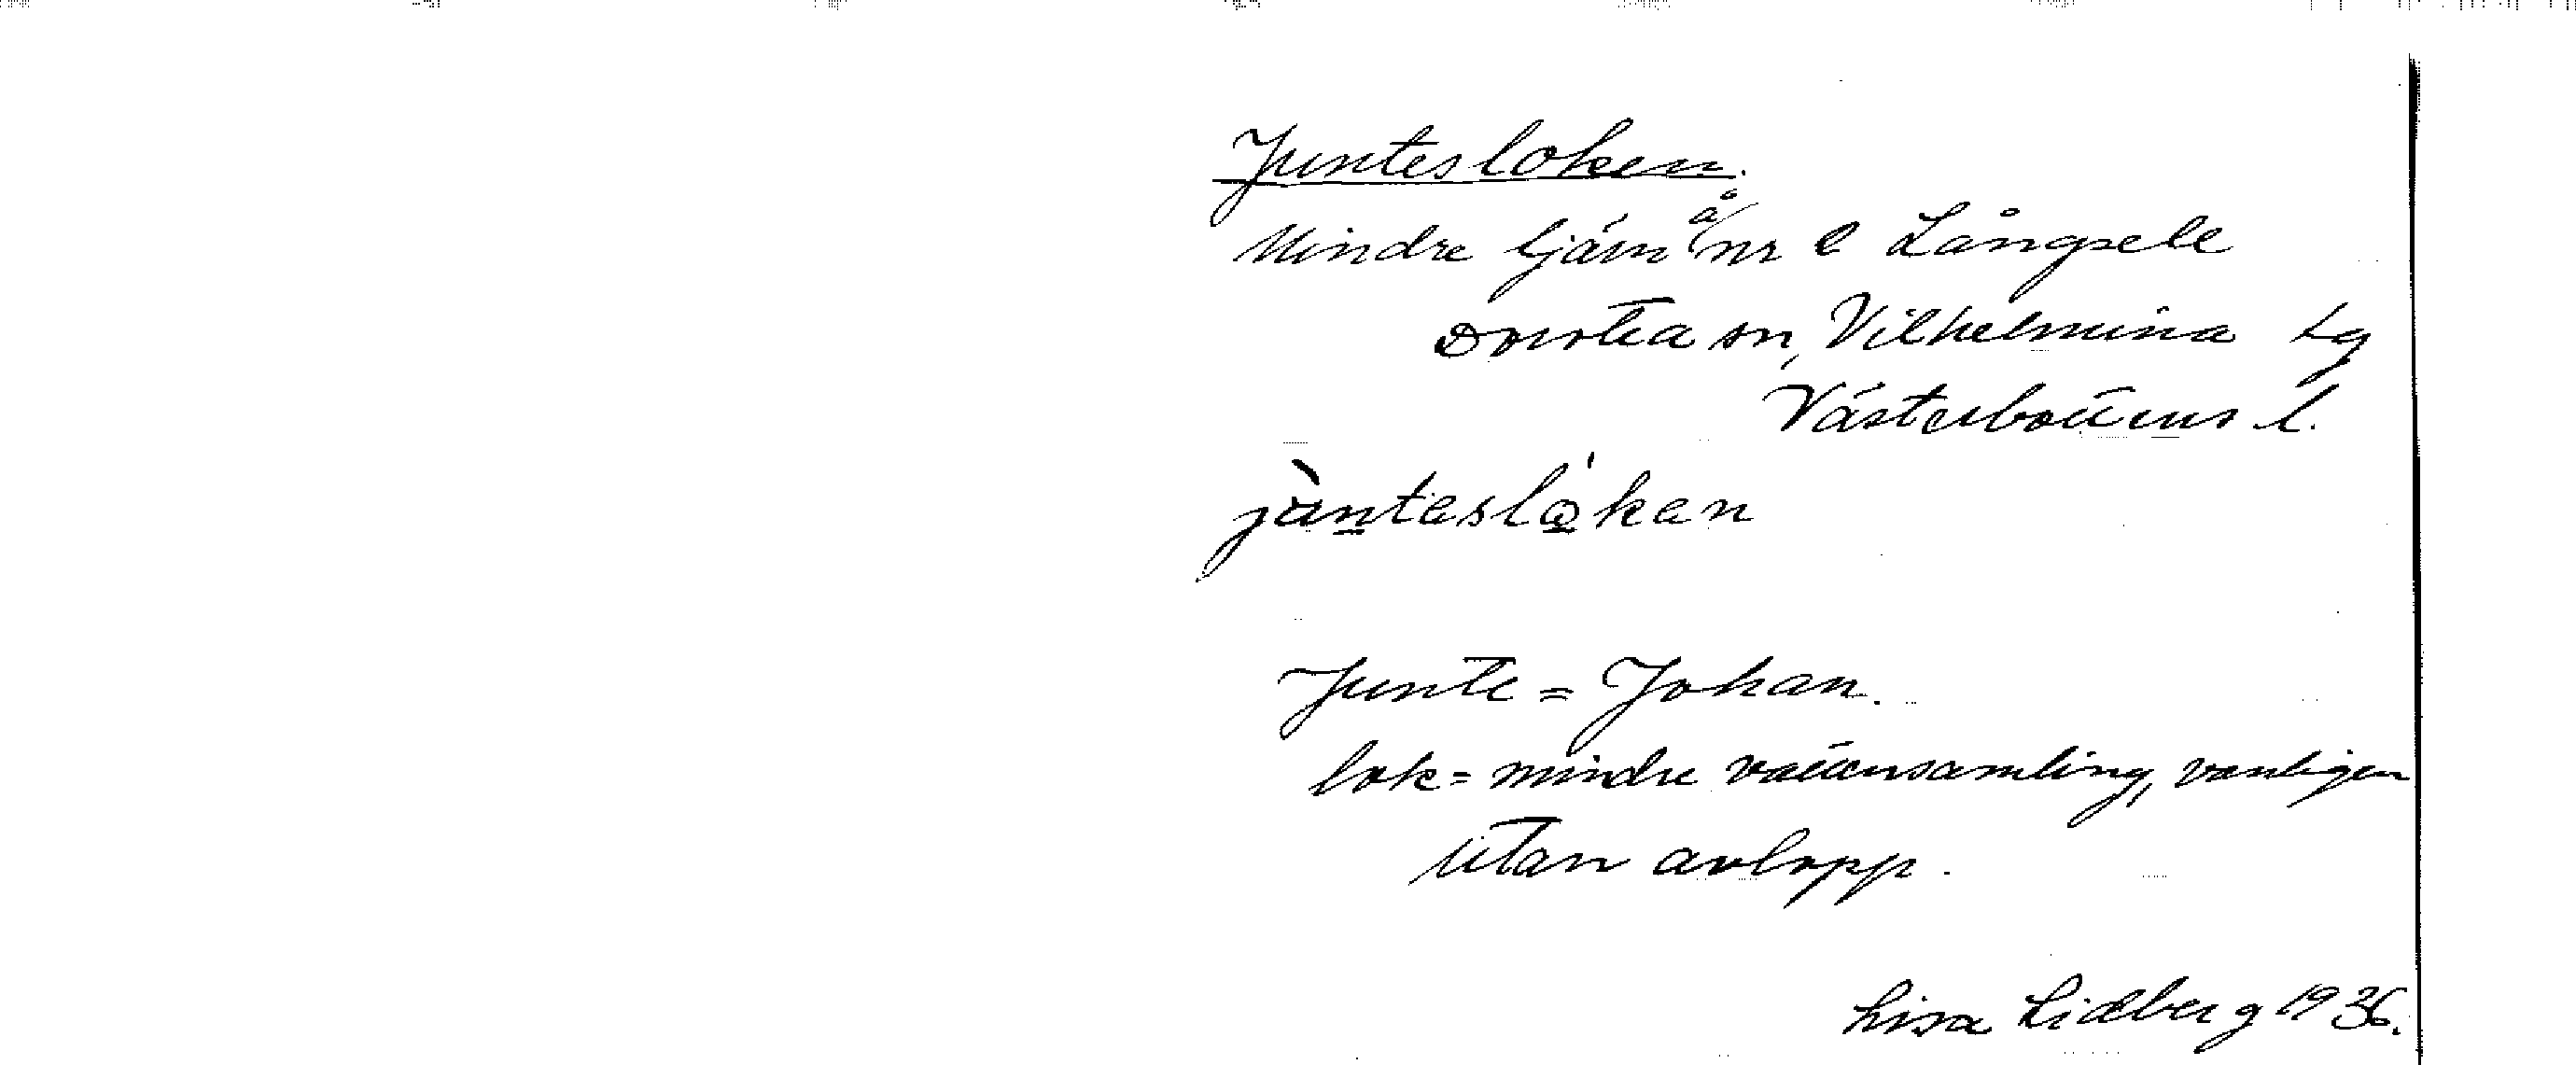 Juntesloken.
Mindre tjärn å nr 2 Långsele
Dorotea sn, Vilhelmina tg
Västerbottens l.
jùntaslo̱'kan
Junte = Johan.
lok = mindre vattensamling, vanligen
utan avlopp.
Lisa Lidberg 1936.